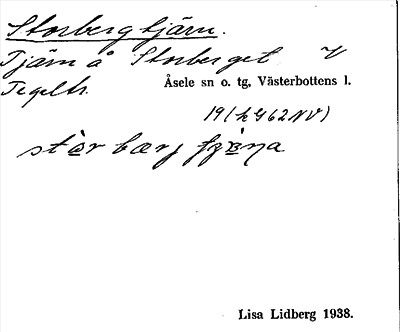 Storbergtjärn.
Tjärn å Storberget V
Tegeltr.
Åsele sn o. tg, Västerbottens l.
19 (h G 62 NV)
Lisa Lidberg 1938.